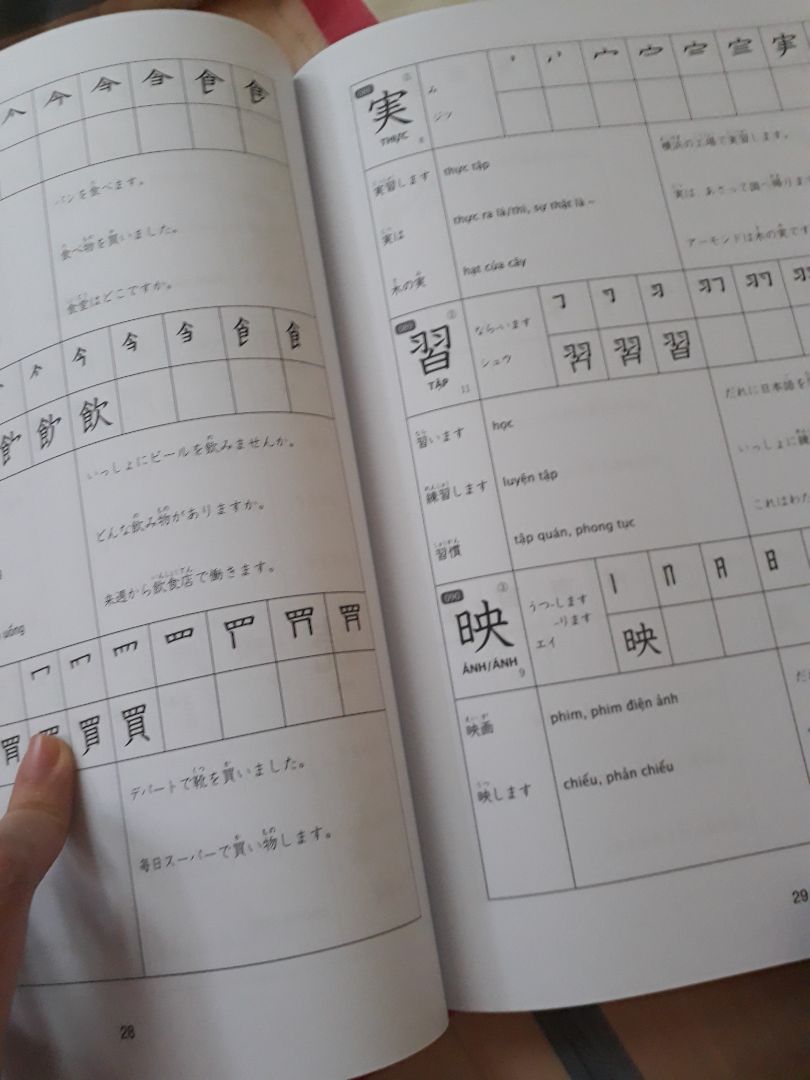 今 食 食
パンを食べます。
食べ物を買いました。
食堂はどこですか。
今 食 食
飲 飲
いっしょにビールを飲みませんか。
どんな飲み物がありますか。
来週から飲食店で働きます。
uống
買 買
デパートで靴を買いました。
毎日スーパーで買い物します。
28
実
THỰC
8
み
ジツ
実習します
thực tập
横浜の工場で実習します。
実は
thực ra là/thì, sự thật là ~
実は、あさって国へ帰りま
木の実
hạt của cây
アーモンドは木の実です
習
TẬP
11
なら-います
シュウ
習 習 習
習います
học
だれに日本語を
練習します
luyện tập
いっしょに練
習慣
tập quán, phong tục
これはわた
090
映
ÁNH/ẢNH
9
うつ-します
-ります
エイ
映
映画
phim, phim điện ảnh
映します
chiếu, phản chiếu
29